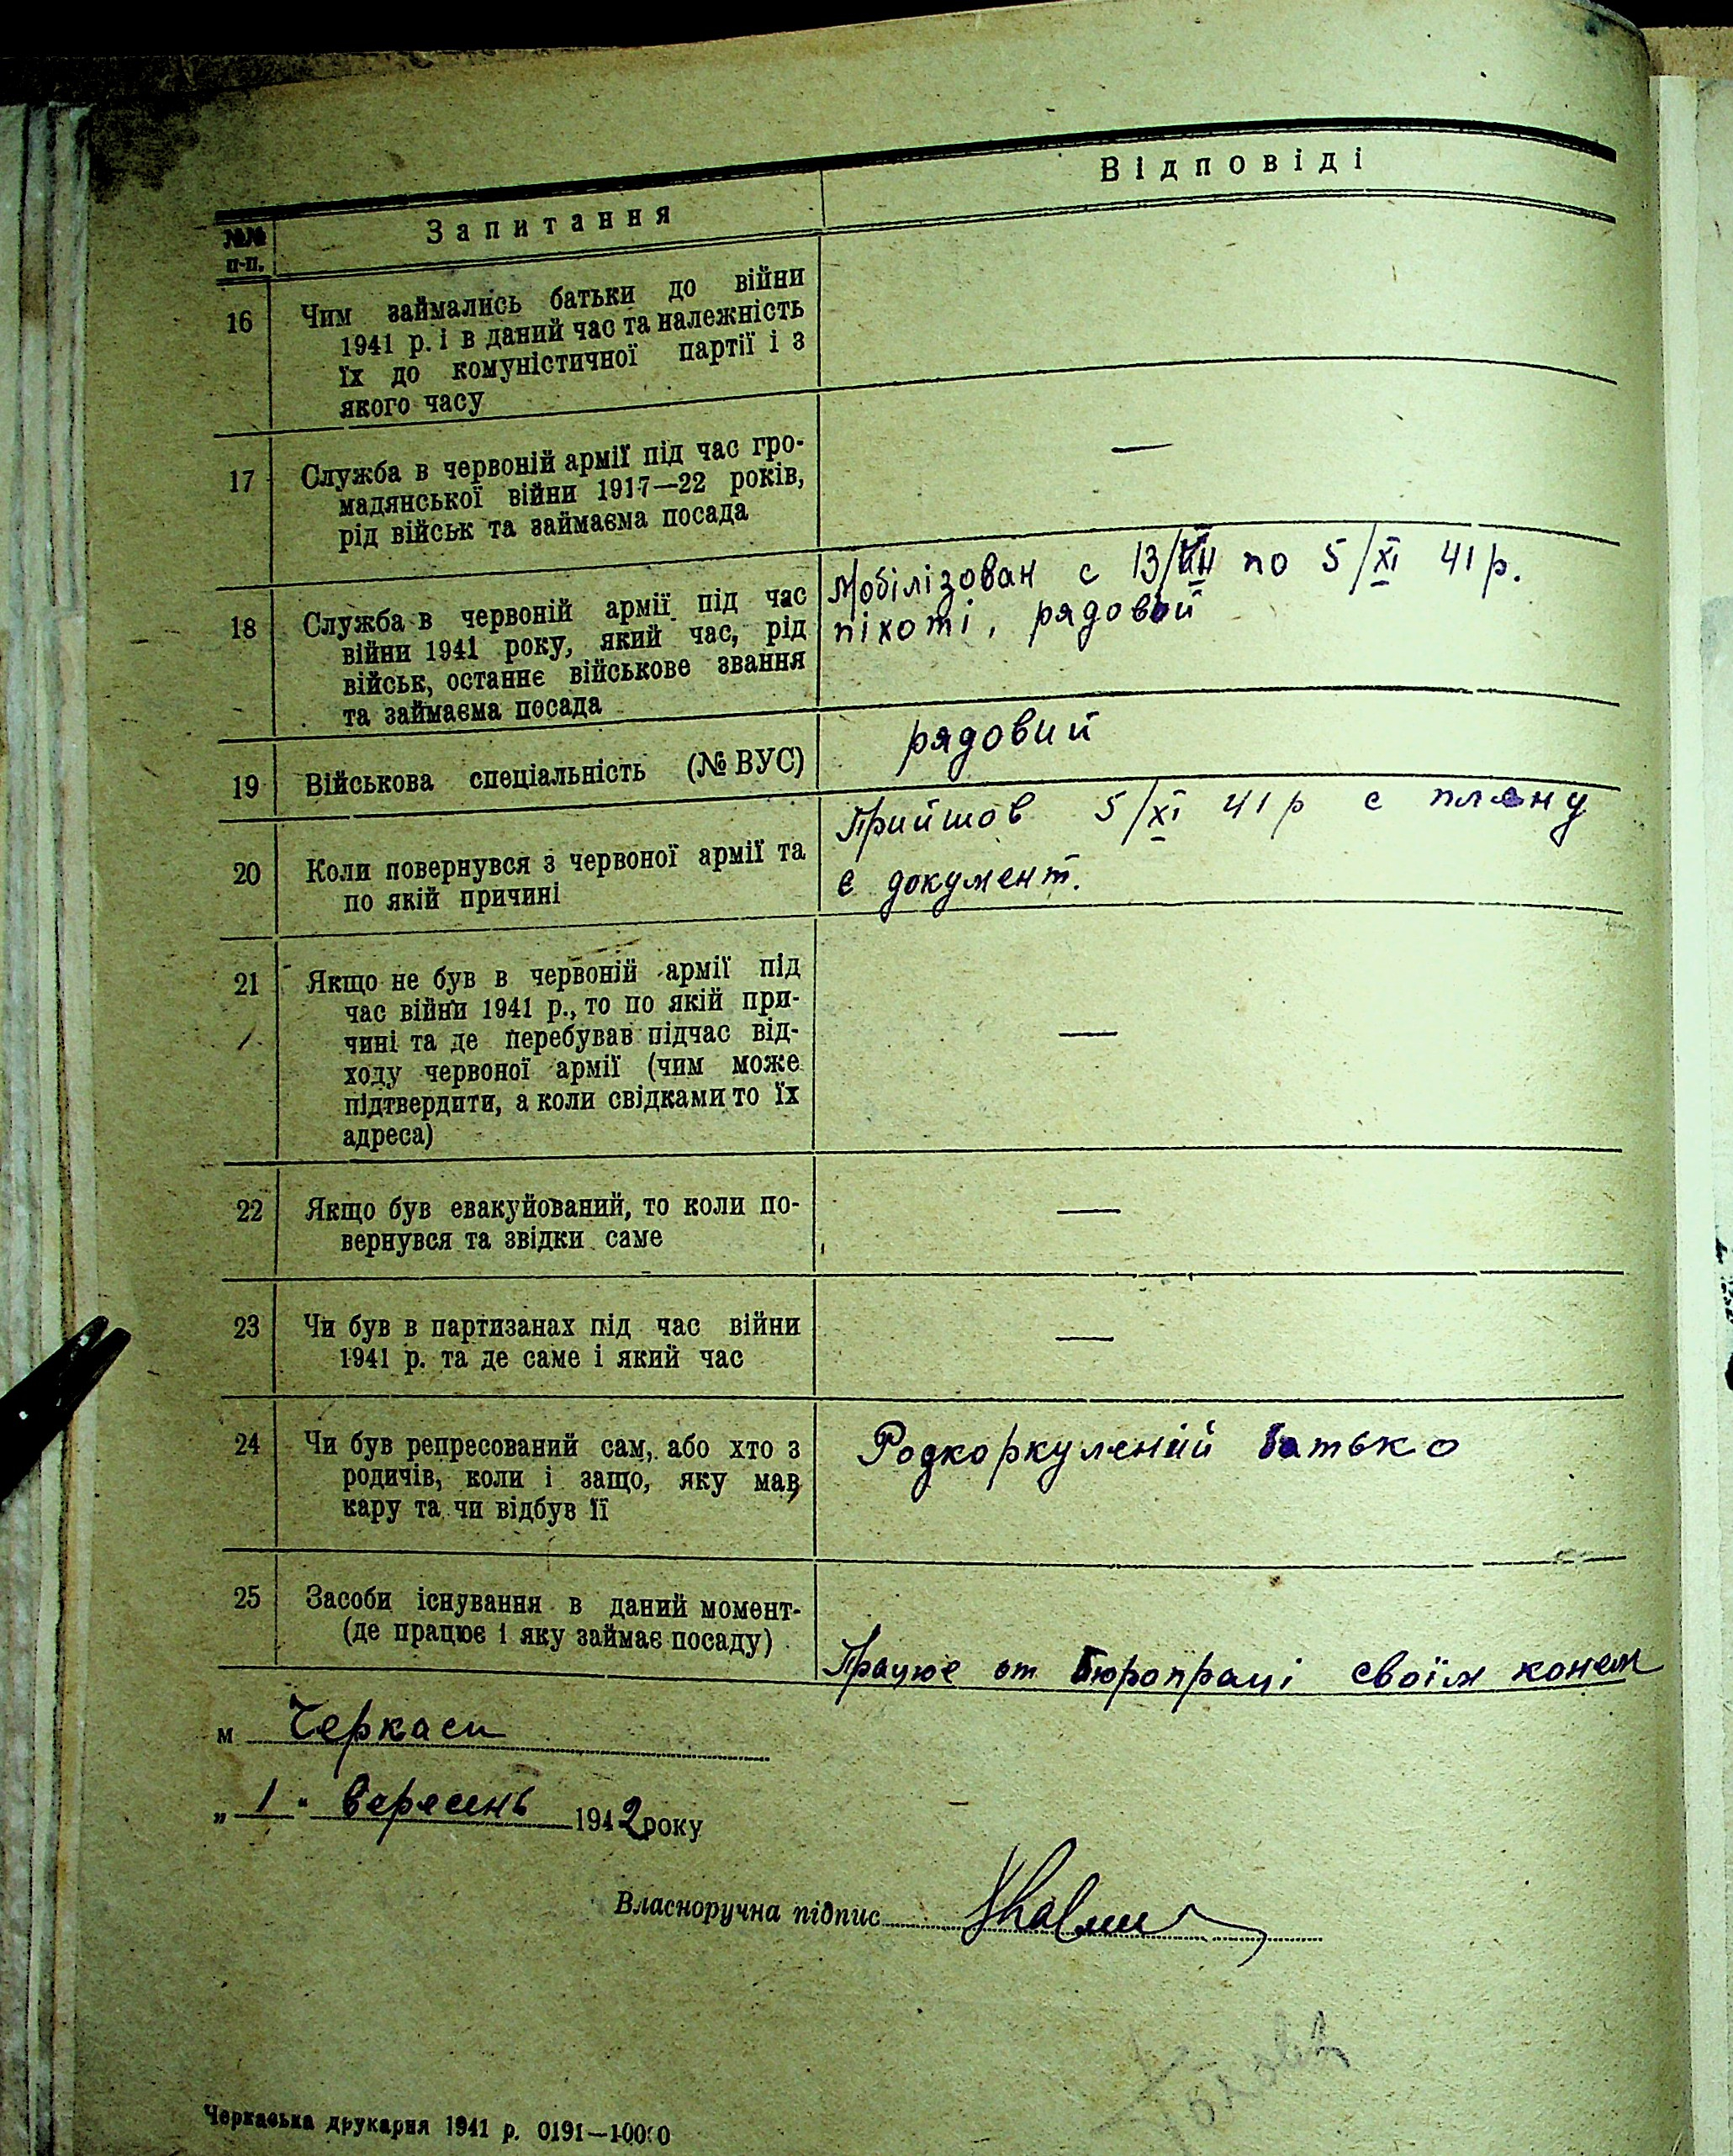 Відповіді
№№ п-п. Запитання
16 Чим займались батьки до війни
1941 р. і в даний час та належність
їх до комуністичної партії і з
якого часу
17 Служба в червоній армії під час гро-
мадянської війни 1917—22 років,
рід військ та займаєма посада
—
18 Служба в червоній армії під час
війни 1941 року, який час, рід
військ, останнє військове звання
та займаєма посада
Мобілізован с 13/VII по 5/XI 41 р.
піхоті, рядовий
19 Військова спеціальність (№ ВУС)
рядовий
20 Коли повернувся з червоної армії та
по якій причині
Прийшов 5/XI 41 р с плену
є документ.
21 Якщо не був в червоній армії під
час війни 1941 р., то по якій при-
чині та де перебував підчас від-
ходу червоної армії (чим може
підтвердити, а коли свідками то їх
адреса)
—
22 Якщо був евакуйований, то коли по-
вернувся та звідки саме
—
23 Чи був в партизанах під час війни
1941 р. та де саме і який час
—
24 Чи був репресований сам, або хто з
родичів, коли і защо, яку мав
кару та чи відбув її
Родкоркулений батько
25 Засоби існування в даний момент-
(де працює і яку займає посаду)
Працює от бюропраці своїм конем
м Черкаси
„ 1 " вересень 1942 року
Власноручна підпис
Черкаська друкарня 1941 р. 0191—10000